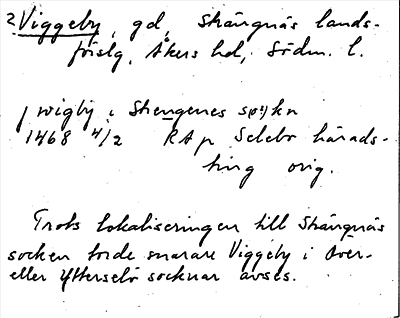 ? Viggeby, gd, Strängnäs lands-
förslg, Åkers hd, Södm. l.
/ wigby i Strengenes s(o!)kn
1468 4/2 RA p Selebo härads-
ting orig.
Trots lokaliseringen till Strängnäs
socken torde snarare Viggeby i Över-
eller Ytterselö socknar avses.